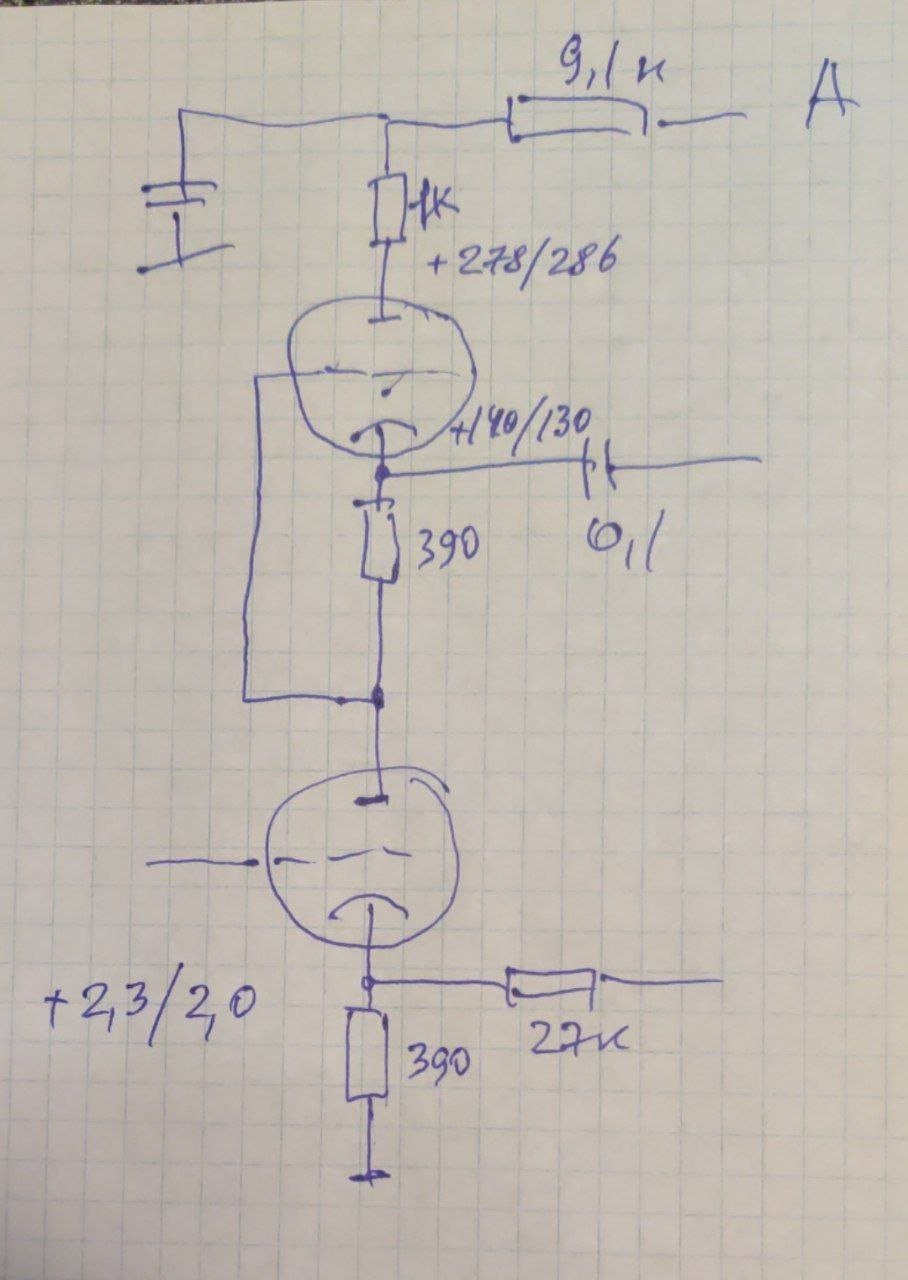 9,1к
А
1К
+278/286
+140/130
390
0,1
+2,3/2,0
27к
390